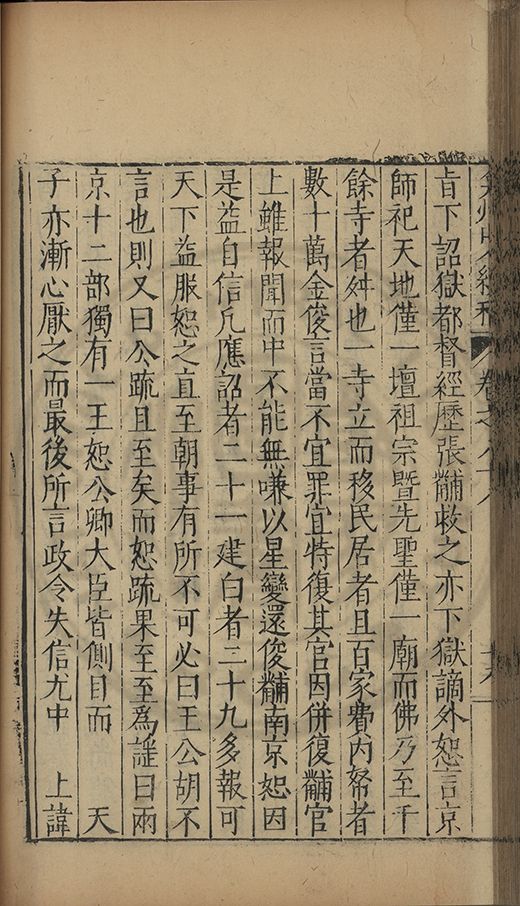 旨下詔獄都督經歷張黼救之亦下獄謫外恕言京
師祀天地僅一壇祖宗暨先聖僅一廟而佛乃至千
餘寺者舛也一寺立而移民居者且百家費内帑者
數十萬金俊言當不宜罪宜特復其官因併復黼官
上雖報聞而中不能無嗛以星變還俊黼南京恕因
是益自信凡應詔者二十一建白者三十九多報可
天下益服恕之直至朝事有所不可必曰王公胡不
言也則又曰公疏且至矣而恕疏果至至爲謡曰兩
京十二部獨有一王恕公卿大臣皆側目而　　天
子亦漸心厭之而最後所言政令失信尤中　上諱